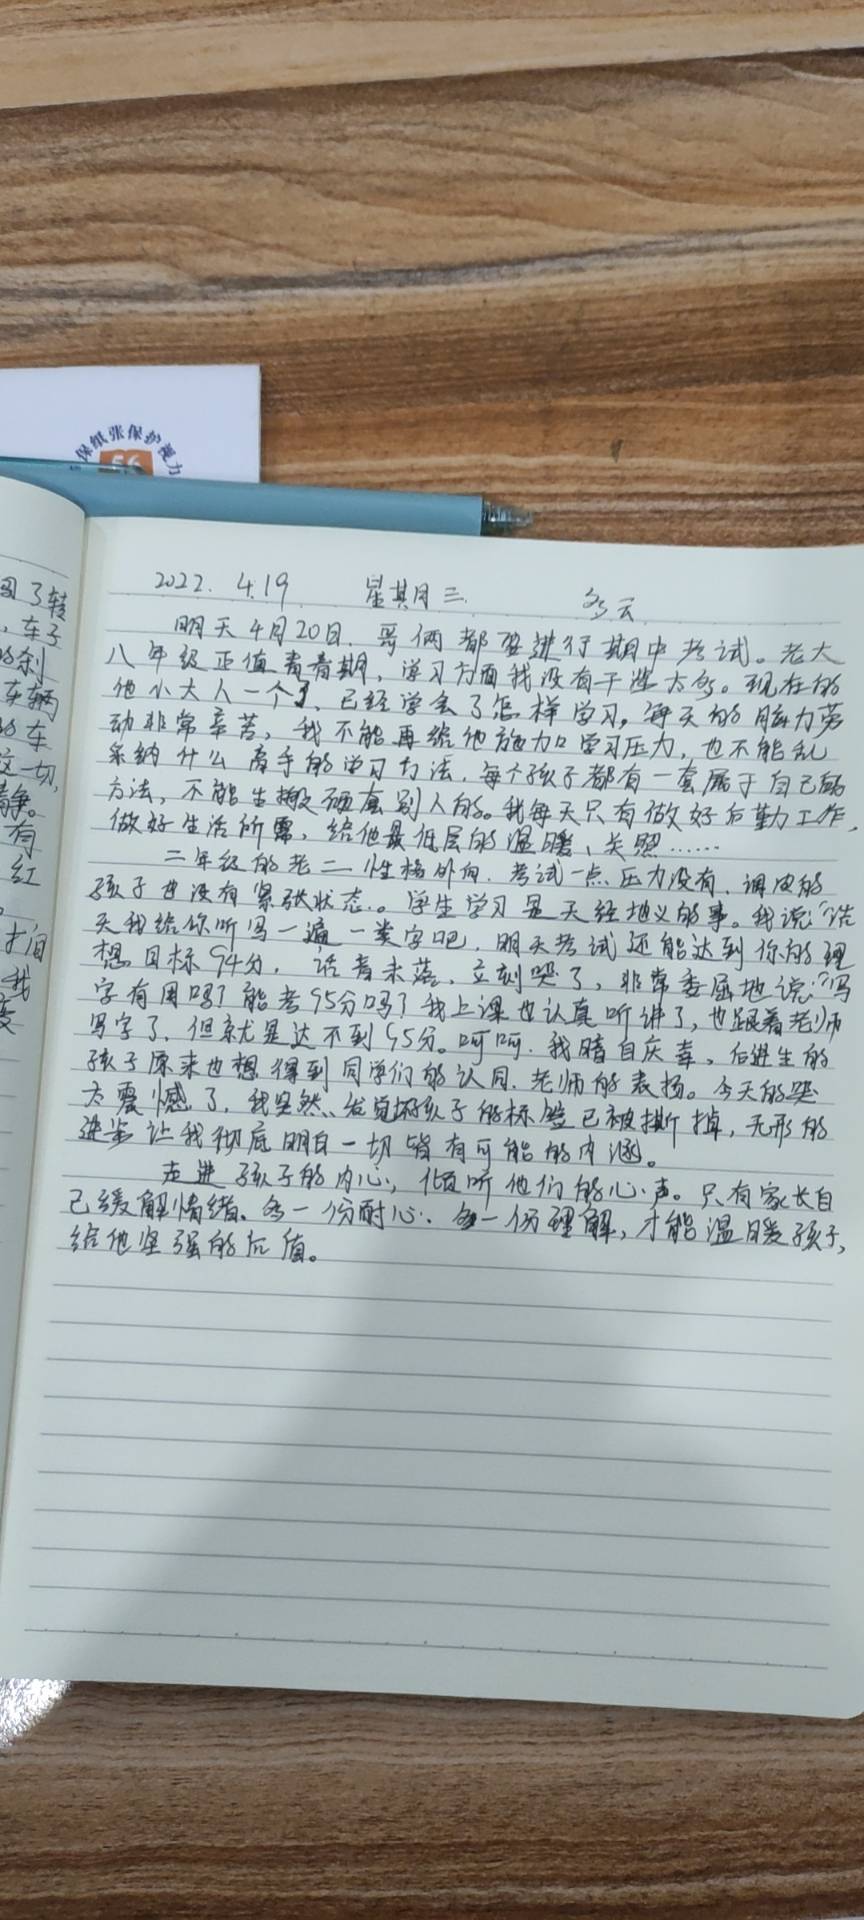 保纸张保护视力
56
图了转
，车子
的刹
车辆
的车
这一切，
静。
有
红
才间
我
变
2022. 4.19 星期三. 多云
明天4月20日，哥俩都要进行期中考试。老大
八年级正值青春期，学习方面我没有干涉太多。现在的
他小大人一个了，已经学会了怎样学习，每天的脑力劳
动非常辛苦，我不能再给他施加学习压力，也不能乱
采纳什么高手的学习方法，每个孩子都有一套属于自己的
方法，不能生搬硬套别人的。我每天只有做好后勤工作，
做好生活所需，给他最低层的温暖、关照……
二年级的老二性格外向，考试一点压力没有，调皮的
孩子也没有紧张状态。学生学习是天经地义的事。我说：“
天我给你听写一遍一类字吧，明天考试还能达到你的理
想目标94分，话音未落，立刻哭了，非常委屈地说：“写
字有用吗？能考95分吗？我上课也认真听讲了，也跟着老师
写字了，但就是达不到95分。呵呵，我暗自庆幸，后进生的
孩子原来也想得到同学们的认同，老师的表扬。今天的哭
太震憾了，我突然发觉坏孩子的标签已被撕掉，无形的
进步让我彻底明白一切皆有可能的内涵。
走进孩子的内心，倾听他们的心声。只有家长自
己缓解情绪、多一份耐心、多一份理解，才能温暖孩子，
给他坚强的后盾。